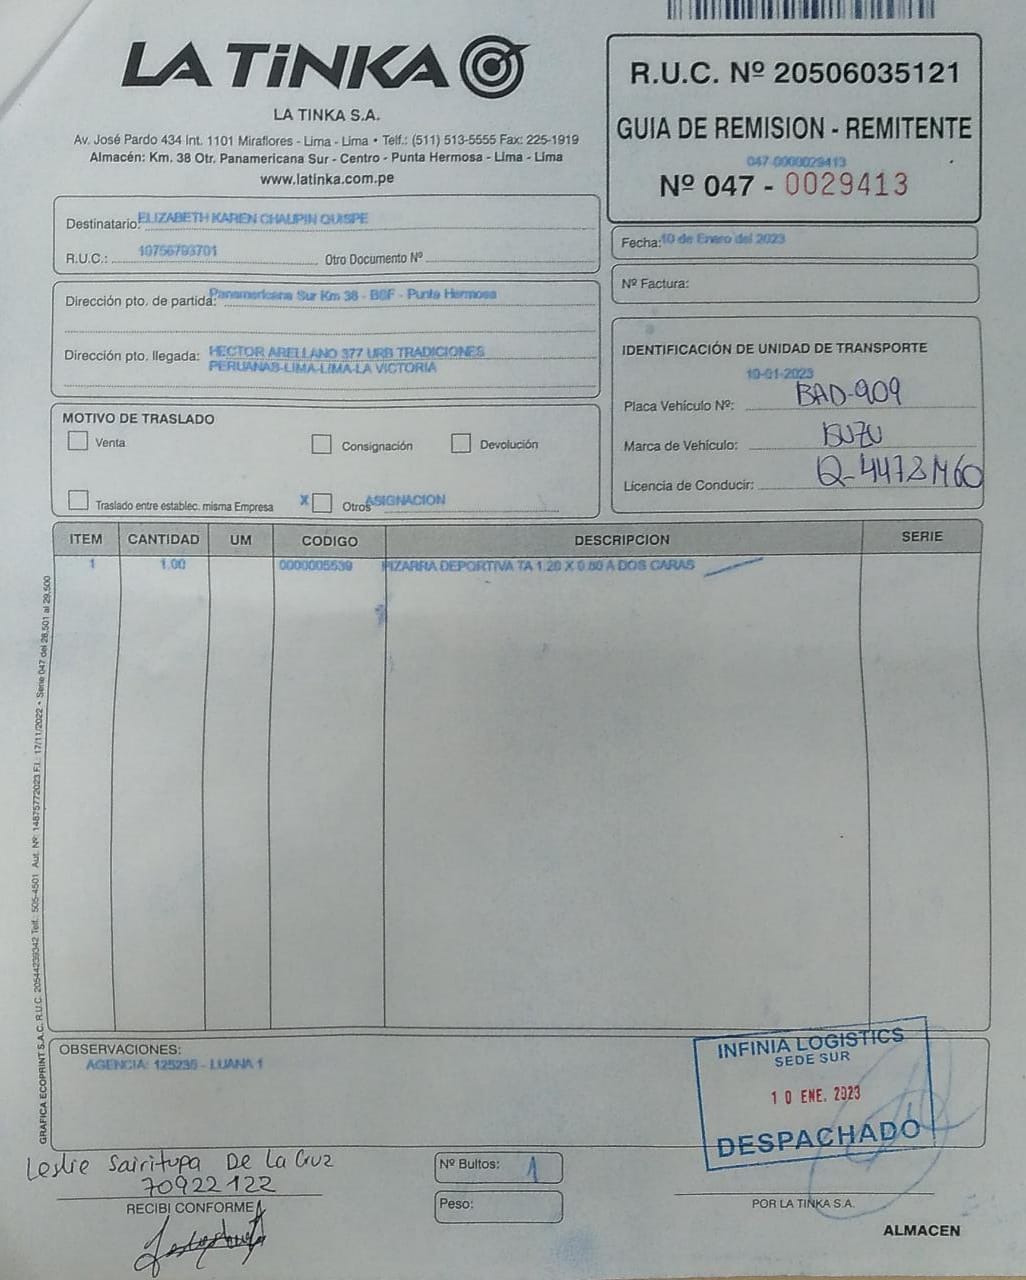 LA TiNKA
LA TINKA S.A.
Av. José Pardo 434 Int. 1101 Miraflores - Lima - Lima • Telf.: (511) 513-5555 Fax: 225-1919
Almacén: Km. 38 Otr. Panamericana Sur - Centro - Punta Hermosa - Lima - Lima
www.latinka.com.pe
R.U.C. Nº 20506035121
GUIA DE REMISION - REMITENTE
047-0000029413
Nº 047 - 0029413
Destinatario: ELIZABETH KAREN CHAUPIN QUISPE
R.U.C.: 10756793701 Otro Documento Nº
Fecha: 10 de Enero del 2023
Nº Factura:
Dirección pto. de partida: Panamericana Sur Km 38 - BSF - Punta Hermosa
Dirección pto. llegada: HECTOR ARELLANO 377 URB TRADICIONES
PERUANAS-LIMA-LIMA-LA VICTORIA
IDENTIFICACIÓN DE UNIDAD DE TRANSPORTE
10-01-2023
Placa Vehículo Nº: BAD-909
Marca de Vehículo: ISUZU
Licencia de Conducir: Q-4473M60
MOTIVO DE TRASLADO
Venta Consignación Devolución
Traslado entre establec. misma Empresa X Otros ASIGNACION
ITEM CANTIDAD UM CODIGO DESCRIPCION SERIE
1 1.00 0000005539 PIZARRA DEPORTIVA TA 1.20 X 0.80 A DOS CARAS
GRAFICA ECOPRINT S.A.C. R.U.C. 20544239342 Telf.: 505-4501 Aut. Nº: 14875772023 F.I.: 17/11/2022 • Serie 047 del 28,501 al 29,500
OBSERVACIONES:
AGENCIA: 125235 - LUANA 1
INFINIA LOGISTICS
SEDE SUR
10 ENE. 2023
DESPACHADO
Leslie Sairitupa De La Cruz
70922122
RECIBI CONFORME
Nº Bultos: 1
Peso:
POR LA TINKA S.A.
ALMACEN